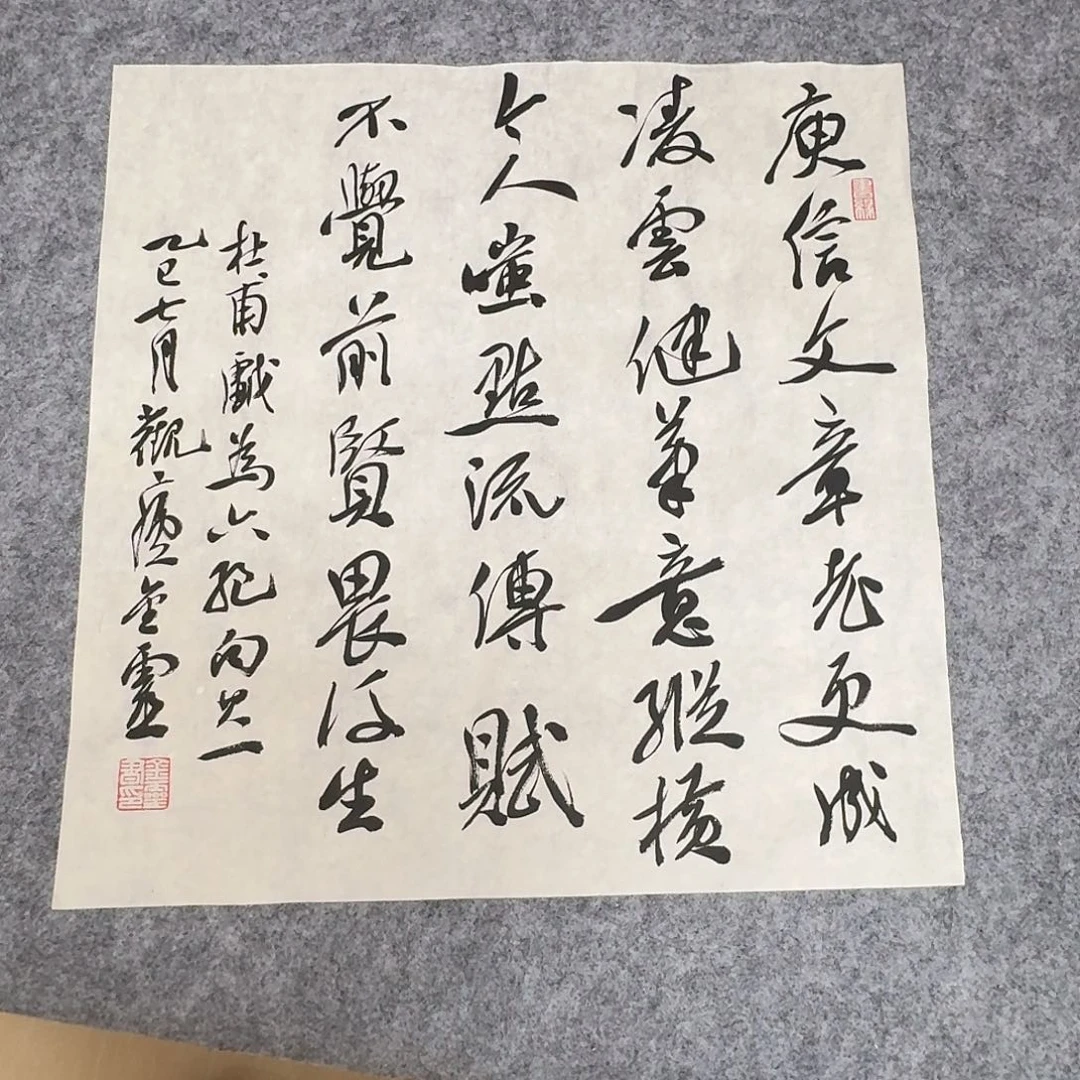 庾信文章老更成
凌雲健筆意縱橫
今人嗤點流傳賦
不覺前賢畏後生
杜甫戲為六絕句之一
乙巳七月觀廬金靈